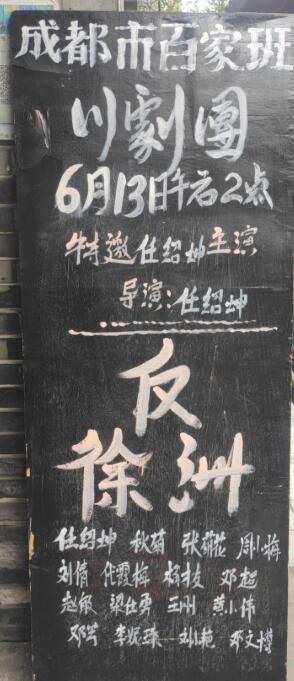 成都市百家班
川劇團
6月13日午后2点
特邀任绍坤主演
导演:任绍坤
反
徐洲
任绍坤 秋菊 张菊花 周小梅
刘倩 任霞梅 杨技 邓超
赵敏 梁仕勇 王州 黄小伟
邓军 李妮珠 刘小艳 邓文博